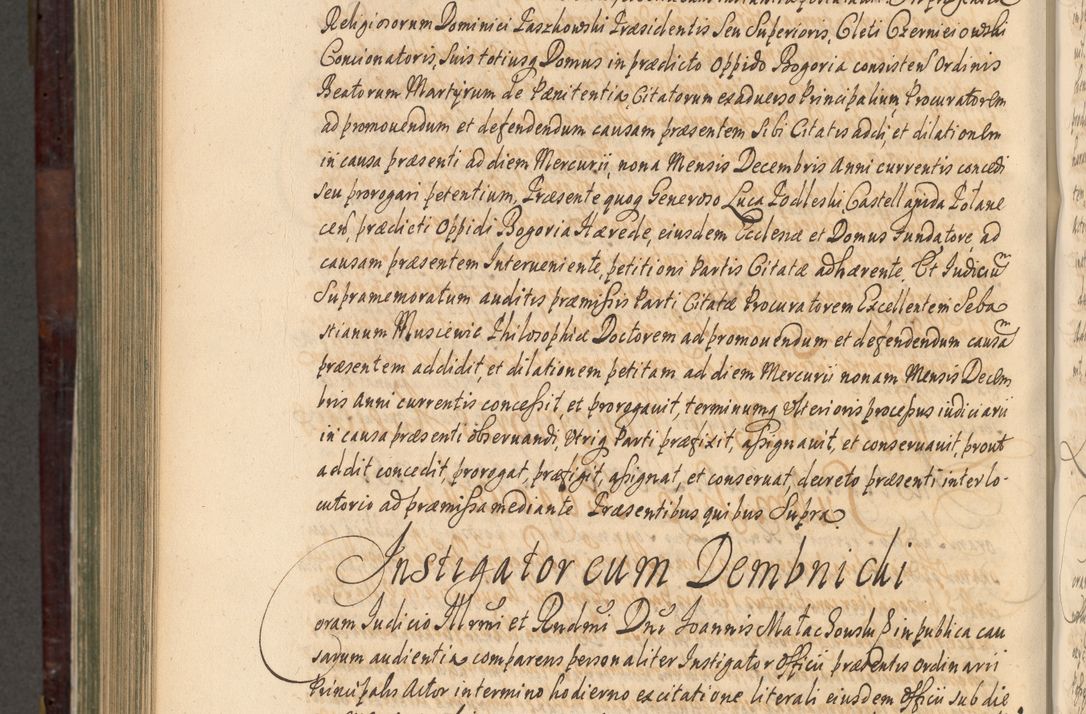 Religiosorum Dominici Jaszkowski Præsidentis Seu Superioris, Cleti Czernieiowski
Concionatoris, Suis totiusq Domus in prædicto Oppido Bogoria consisten Ordinis
Beatorum Martyrum de Pænitentia, Citatorum exaduerso Principalium Procuratorem
ad promouendum et defendendum causam præsentem Sibi Citatis addi, et dilationem
in causa præsenti ad diem Mercurii, nona Mensis Decembris Anni currentis concedi
seu prorogari petentium, Præsente quoq Generoso Luca Podleski Castellanida Polane
cen, prædicti Oppidi Bogoria Hærede, eiusdem Ecclesiæ et Domus Fundatore, ad
causam præsentem Interueniente, petitioni Partis Citatæ adhærente. Et Iudiciu
Supramemoratum auditis præmissis Parti Citatæ Procuratorem Excellentem Seba
stianum Musciewic Philosophiæ Doctorem ad promouendum et defendendum causam
præsentem addidit, et dilationem petitam ad diem Mercurii nonam Mensis Decem
bris Anni currentis concessit, et prorogauit, terminumq Ulterioris processus iudiciarii
in causa præsenti obseruandi, Utriq Parti præfixit, assignauit, et conseruauit, prout
addit concedit, prorogat, præfigit, assignat, et conseruat, decreto præsenti interlo-
cutorio ad præmissa mediante Præsentibus quibus Supra.
Instigator cum Dembnicki
oram Iudicio Illrmi et Rndmi Dni Joannis Małachowski in publica cau
sarum audientia comparens personaliter Instigator Officii præsentis Ordinarii
Principalis Actor in termino hodierno ex citatione literali eiusdem Officii sub die